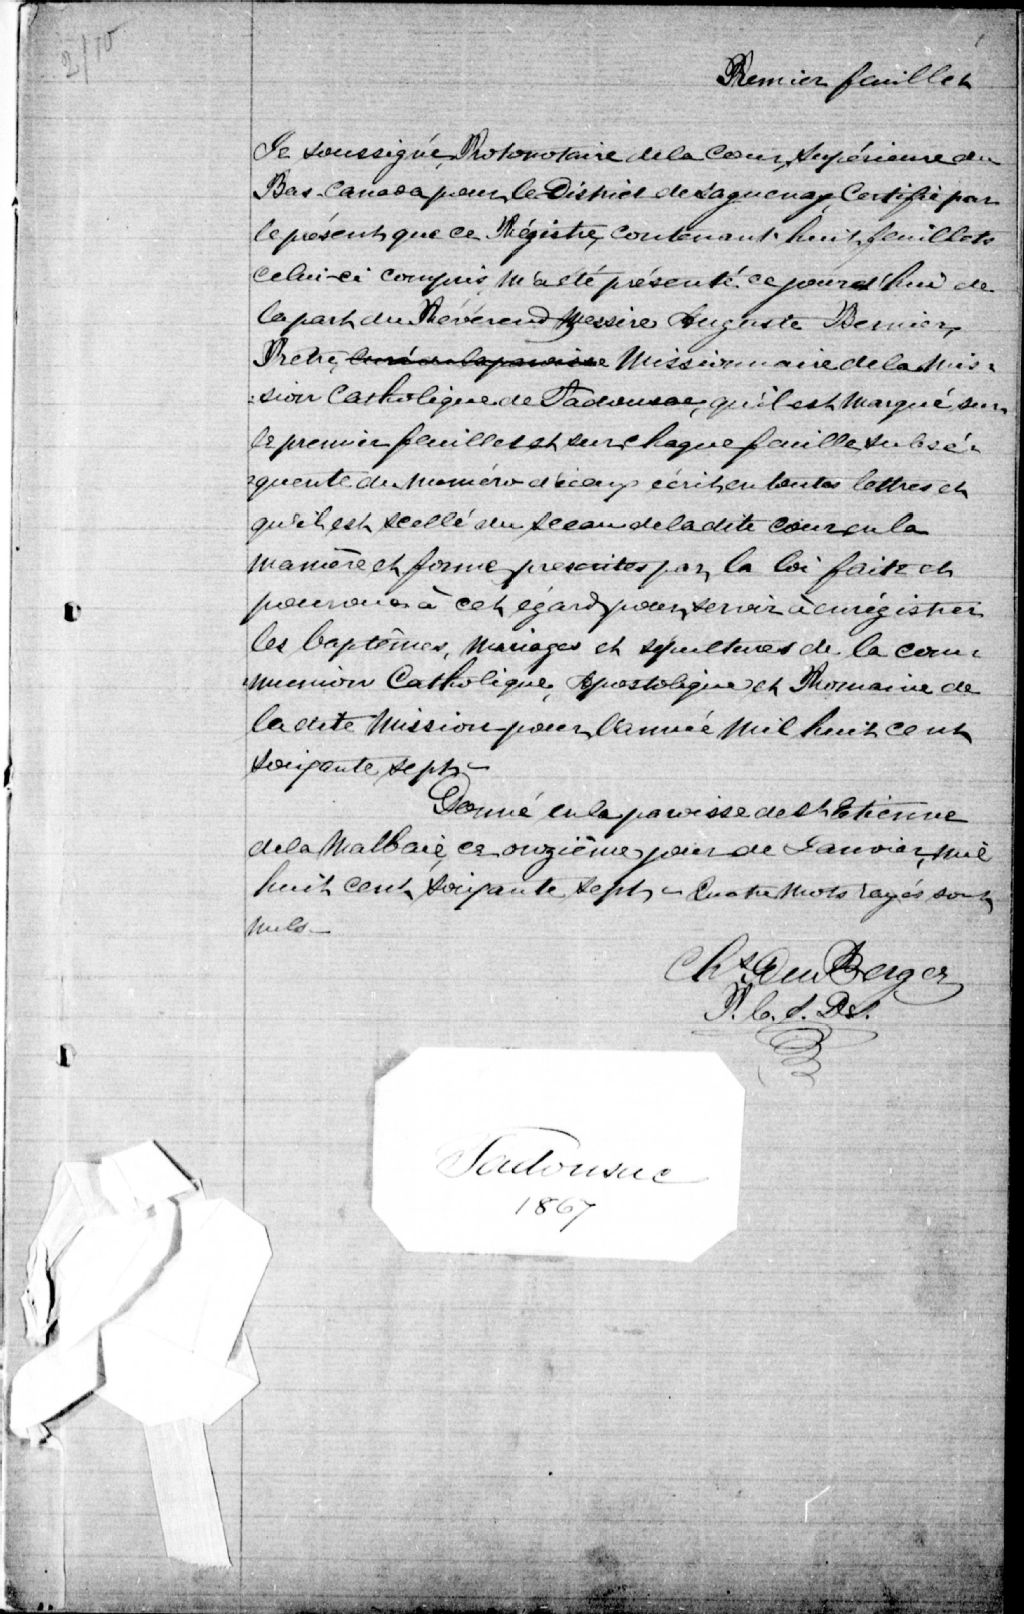 2/10
1
Premier feuillet
Je soussigné, Protonotaire de la Cour Supérieure du
Bas-Canada pour le District de Saguenay, Certifie par
le présent que ce Régistre, contenant huit feuillets
celui-ci compris, m'a été présenté ce jourd'hui de
la part du Révérend Messire Auguste Bernier,
Prêtre, curé de la paroisse Missionnaire de la Mis-
-sion Catholique de Tadousac, qu'il est Marqué sur
le premier feuillet et sur chaque feuille subsé-
-quente du Numéro d'iceux écrit en toutes lettres et
qu'il est scellé du sceau de la dite Cour, en la
manière et forme prescrites par la loi faite et
pourvue à cet égard, pour servir à enrégistrer
les baptêmes, Mariages et sépultures de la com-
-munion Catholique, Apostolique et Romaine de
la dite Mission pour l'année Mil huit cent
soixante sept.-
Donné en la paroisse de St Etienne
de la Malbaie, ce onzième jour de Janvier, mil
huit cent soixante sept - Quatre Mots rayés sont
nuls.-
Chs Du Berger
P. C. S. Ds.
Tadousac
1867